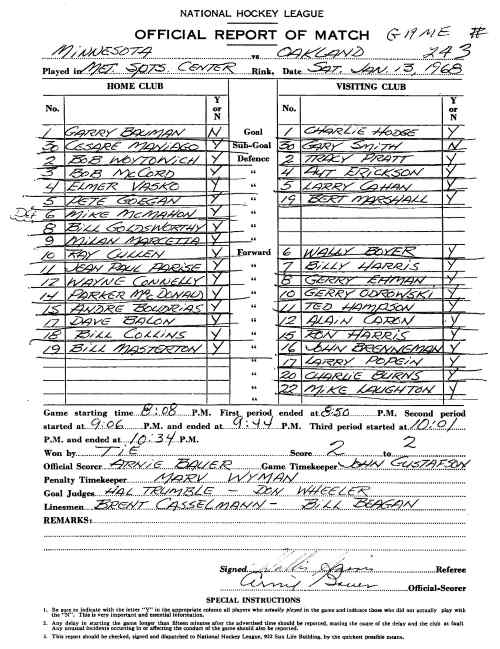 NATIONAL HOCKEY LEAGUE
OFFICIAL REPORT OF MATCH GAME #
MINNESOTA vs OAKLAND 243
Played in MET. SPTS. CENTER Rink, Date SAT. JAN. 13, 1968
HOME CLUB VISITING CLUB
No. Y or N No. Y or N
1 GARRY BAUMAN N Goal 1 CHARLIE HODGE Y
30 CESARE MANIAGO Y Sub-Goal 30 GARY SMITH N
2 BOB WOYTOWICH Y Defence 2 TRACY PRATT Y
3 BOB McCORD Y " 4 AUT ERICKSON Y
4 ELMER VASKO Y " 5 LARRY CAHAN Y
5 PETE GOEGAN Y " 19 BERT MARSHALL Y
DEF 6 MIKE McMAHON Y "
8 BILL GOLDSWORTHY Y "
9 MILAN MARCETTA Y "
10 RAY CULLEN Y Forward 6 WALLY BOYER Y
11 JEAN PAUL PARISE Y " 7 BILLY HARRIS Y
12 WAYNE CONNELLY Y " 8 GERRY EHMAN Y
14 PARKER McDONALD Y " 10 GERRY ODROWSKI Y
15 ANDRE BOUDRIAS Y " 11 TED HAMPSON Y
17 DAVE BALON Y " 12 ALAIN CARON Y
18 BILL COLLINS Y " 15 RON HARRIS Y
19 BILL MASTERTON Y " 16 JOHN BRENNEMAN Y
" 17 LARRY POPEIN Y
" 20 CHARLIE BURNS Y
" 22 MIKE LAUGHTON Y
Game starting time 8:08 P.M. First period ended at 8:50 P.M. Second period
started at 9:06 P.M. and ended at 9:44 P.M. Third period started at 10:01
P.M. and ended at 10:34 P.M.
Won by TIE Score 2 to 2
Official Scorer ARNIE BAUER Game Timekeeper JOHN GUSTAFSON
Penalty Timekeeper MARV WYMAN
Goal Judges HAL TRUMBLE - DON WHEELER
Linesmen BRENT CASSELMANN - BILL BEAGAN
REMARKS:
Signed Referee
Arnie Bauer Official-Scorer
SPECIAL INSTRUCTIONS
1. Be sure to indicate with the letter "Y" in the appropriate column all players who actually played in the game and indicate those who did not actually play with
the "N". This is very important and essential information.
2. Any delay in starting the game longer than fifteen minutes after the advertised time should be reported, stating the cause of the delay and the club at fault.
Any unusual incidents occurring in or affecting the conduct of the game should also be reported.
3. This report should be checked, signed and dispatched to National Hockey League, 922 Sun Life Building, by the quickest possible means.